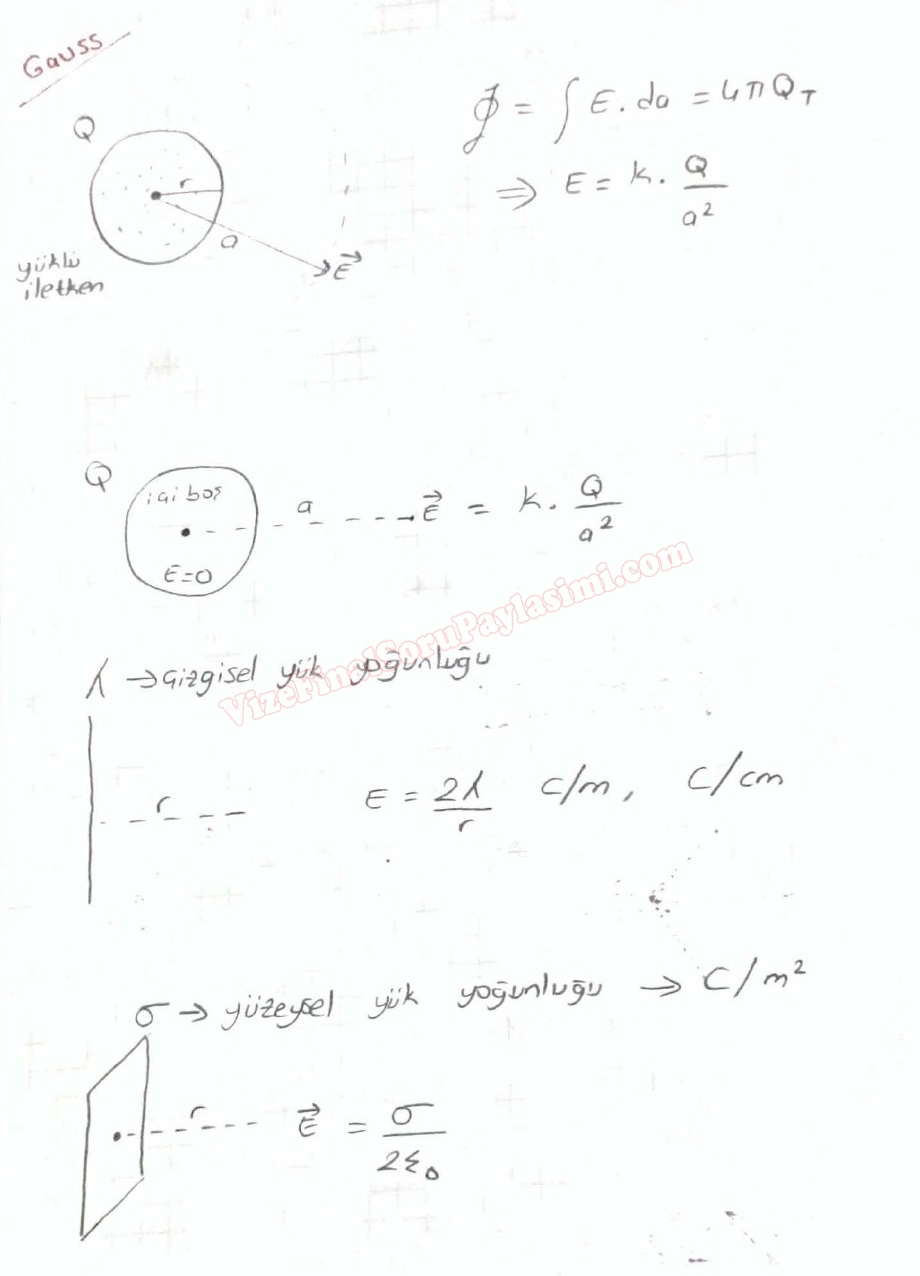 Gauss
Q
r
a
E⃗
yüklü
iletken
∮ = ∫ E . da = 4πQ_T
⇒ E = k . Q/a²
Q
içi boş
E=0
a
E⃗ = k . Q/a²
VizeFinalSoruPaylasimi.com
λ → Çizgisel yük yoğunluğu
r
E = 2λ/r C/m, C/cm
σ → yüzeysel yük yoğunluğu → C/m²
r
E⃗ = σ/2ε₀